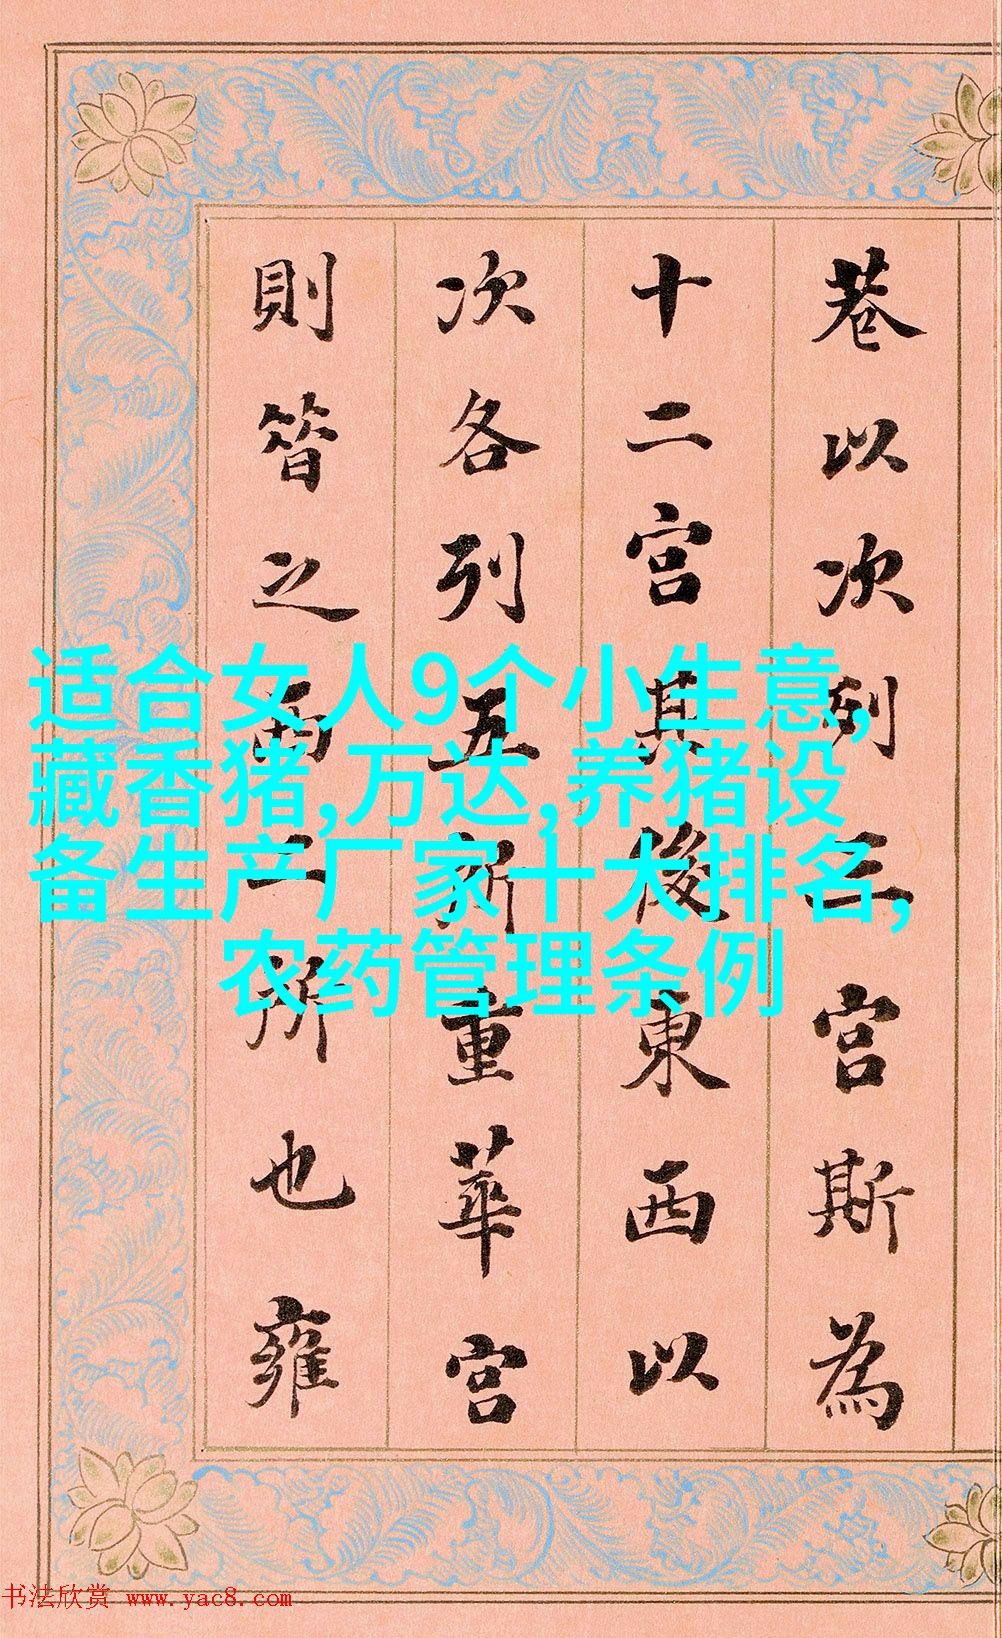 巷以次列三宮斯為
十二宮其後東西以
次各列五所重華宮
則簪之西二所也雍
适合女人9个小生意,
藏香猪,万达,养猪设
备生产厂家十大排名,
农药管理条例
书法欣赏 www.yac8.com